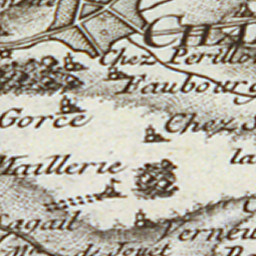 CHA
Chez Perillo
Faubourg
Gorce
Chez S
Maillerie
la
agail
Verneu
de Jouet